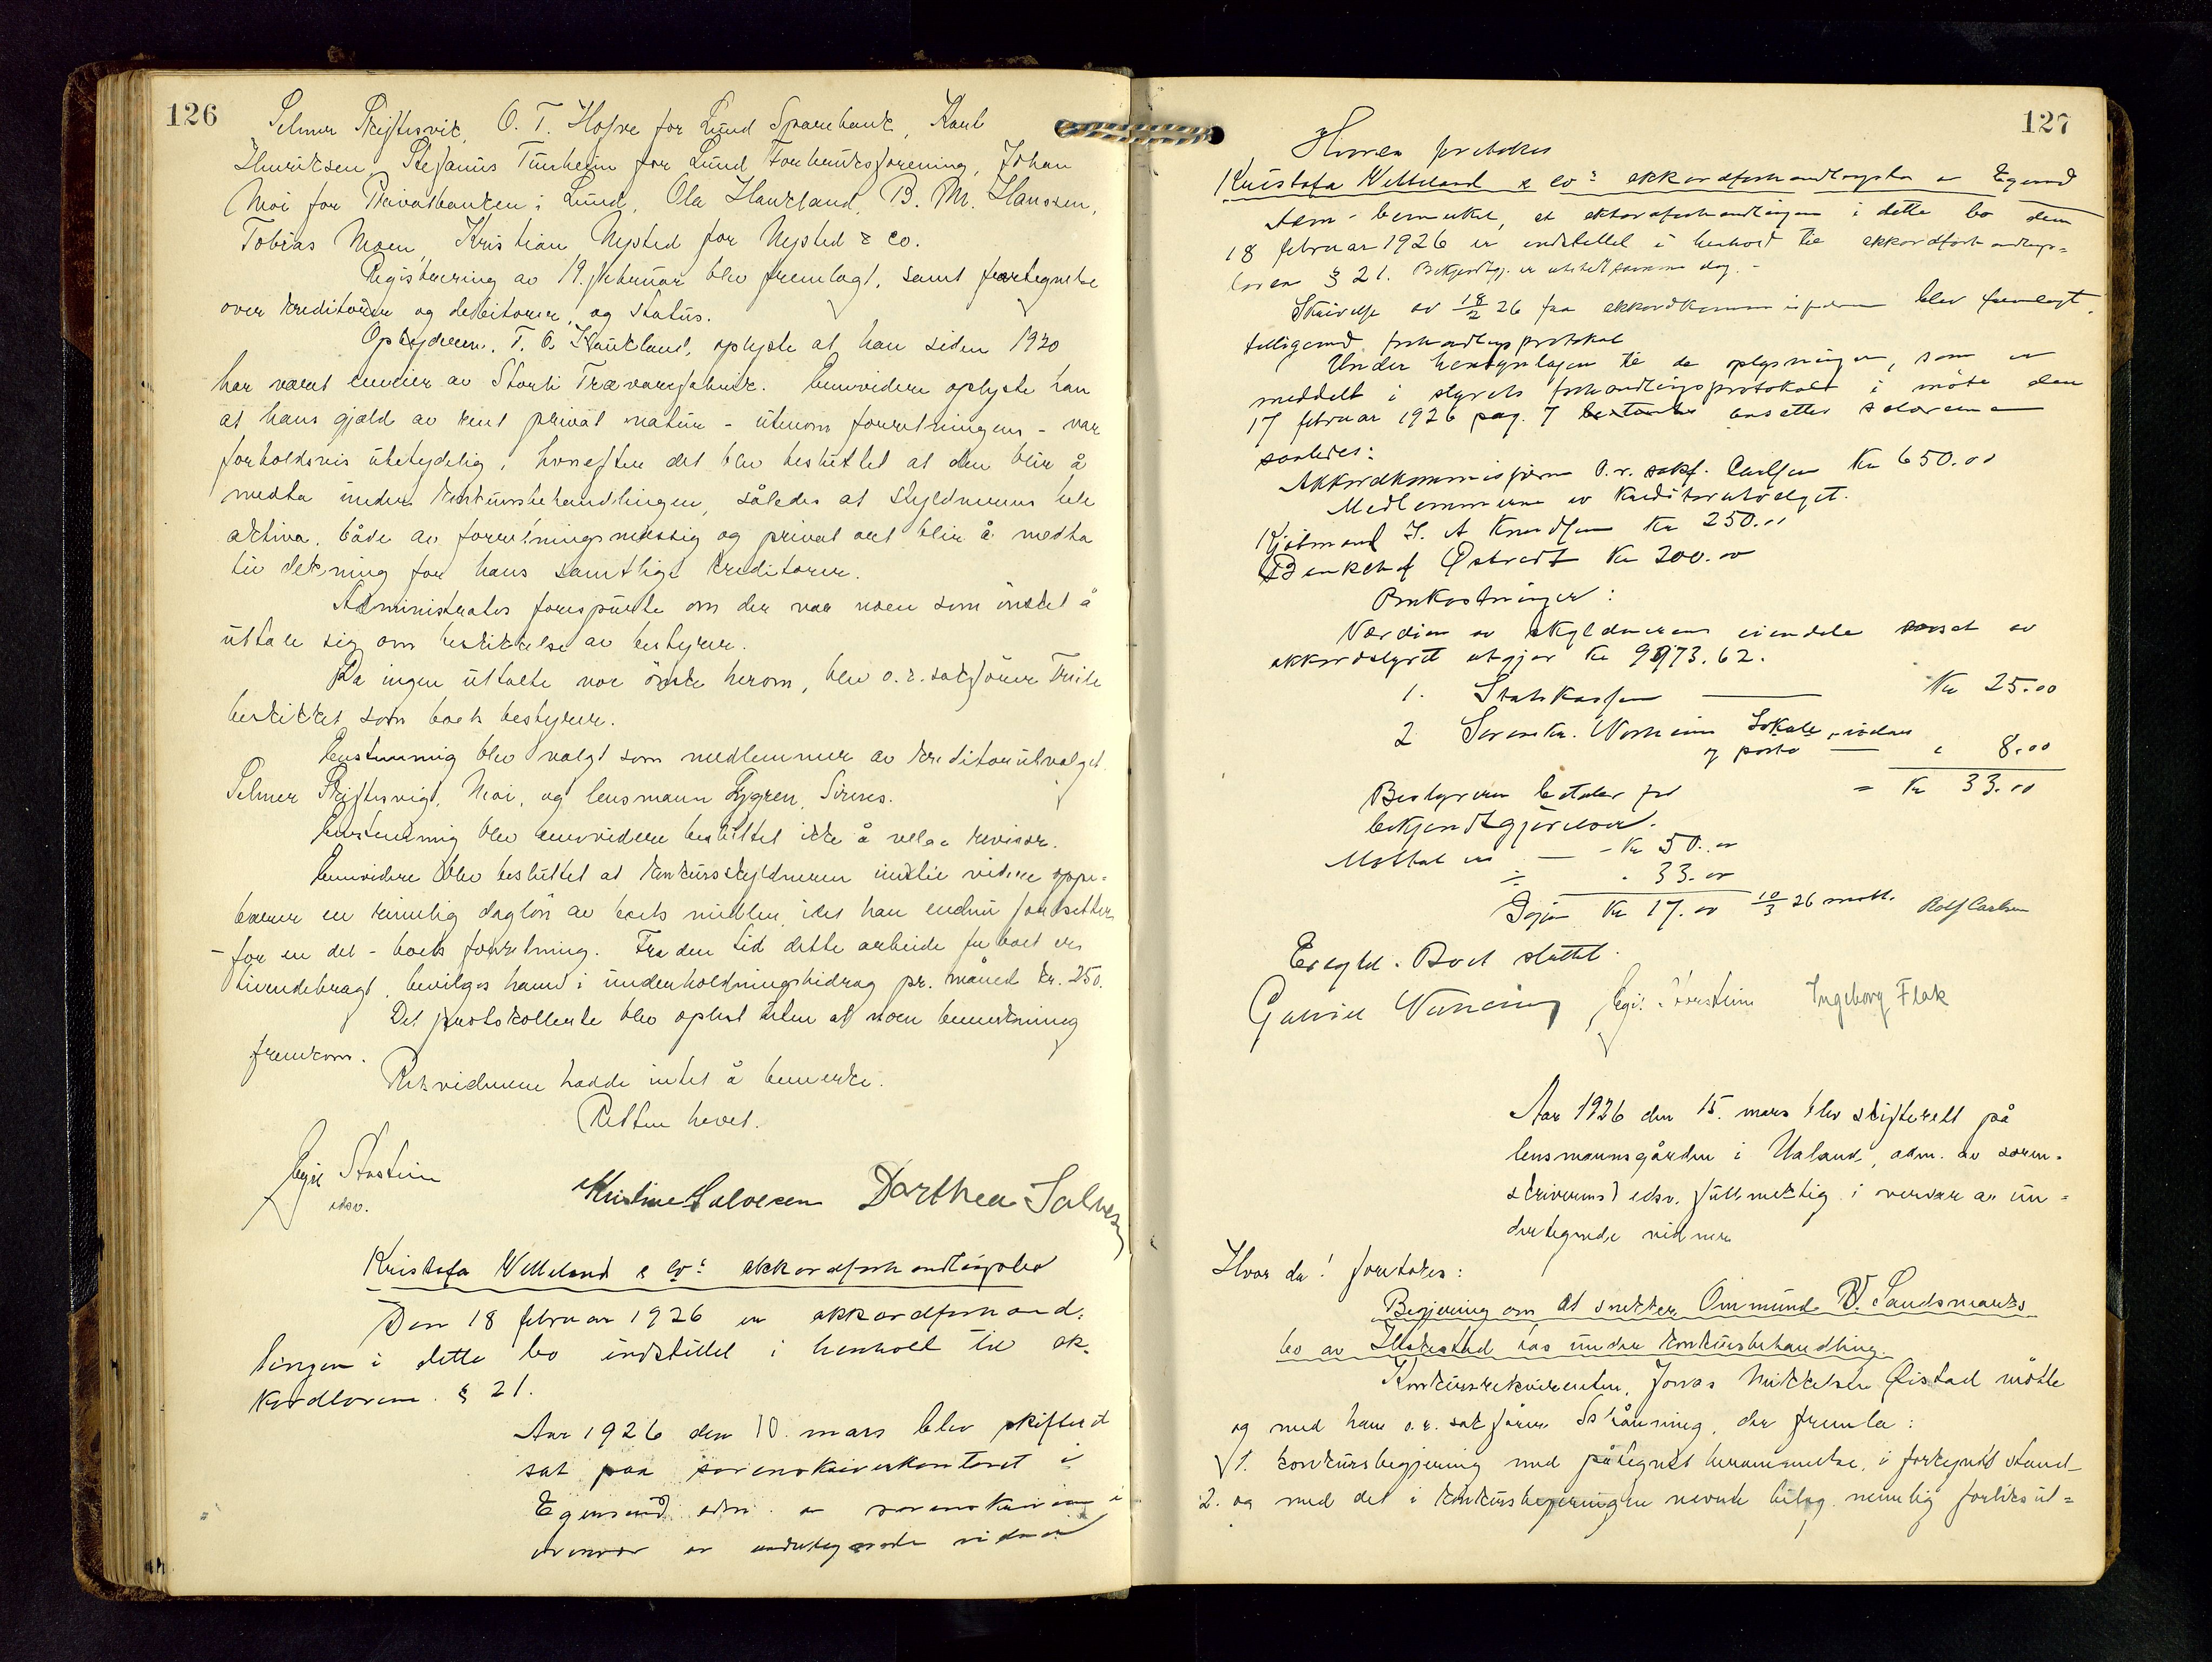 126
Selmer Skiftesvik, O. T. Hofve for Lund Sparebank, Karl
Henriksen, Stefanus Tunheim for Lund Forbruksforening, Johan
Moi for Privatbanken i Lund, Ola Haukland, B. M. Hanssen,
Tobias Moen, Kristian Nysted for Nysted & Co.
Registrering av 19. februar blev fremlagt, samt fortegnelse
over kreditorer og debitorer, og status.
Opbyderen, T. O. Haukland, oplyste at han siden 1920
har været eneeier av Storli Trævarefabrik. Ennvidere oplyste han
at hans gjæld av rent privat natur - utenom forretningens - var
forholdsvis ubetydelig, hvorefter det blev besluttet at den blir å
medta under konkursbehandlingen, således at skyldnerens hele
aktiva, både av forretningsmessig og privat art blir å medta
til dekning for hans samtlige kreditorer.
Administrator forespurte om der var noen som ønsket å
uttale sig om beskikkelse av bestyrer.
Da ingen uttalte noe ønske herom, blev o.r.sakfører
beskikket som boets bestyrer.
Enstemmig blev valgt som medlemmer av kreditorutvalget
Selmer Skiftesvig, Moi, og lensmann Lygren, Sirnes.
Enstemmig blev ennvidere besluttet ikke å velge revisor.
Ennvidere blev besluttet at konkursskyldneren inntil videre oppe-
bærer en rimelig daglön av boets midler, idet han endnu fortsetter
- for en del - boets forretning. Fra den tid dette arbeide for boet er
tilendebragt, bevilges ham i underholdningsbidrag pr. måned kr. 250.
Det protokollerte blev oplest uten at noen bemerkning
fremkom.
Rettsvidnene hadde intet å bemerke.
Retten hevet.
Kristine Salvesen Dorthea Salvesen
Kristofa Welleland & Co: akkordforhandlingsbo
Den 18 februar 1926 er akkordforhand-
lingen i dette bo indstillet i henhold til ak-
kordloven § 21.
Aar 1926 den 10. mars blev skifteret
sat paa sorenskriverkontoret i
Egersund adm. av sorenskriveren i
overvær av undertegnede vidner
127
Hvorda foretokes
Kristofa Welleland & Co: akkordforhandlingsbo av Egersund
bemerket, at akkordforhandlingen i dette bo den
18 februar 1926 er indstillet i henhold til akkordforhandlings-
loven § 21. Bekjentgj. er utstedt samme dag. -
Skrivelse av 18/2 26 fra akkordkommissjæren blev fremlagt,
tilligemed forhandlingsprotokol
Under hensyntagen til de oplysninger, som er
meddelt i styrets forhandlingsprotokol i møte den
17 februar 1926 pag. 7 ansettes salærerne
saaledes:
Akkordkommissjæren O.r. sakf. Carlsen Kr 650.00
Medlemmene av Kreditorutvalget.
Kjøbmand J. A Knudsen Kr 250.00
Bankchef Østvedt Kr 200.00
Omkostninger:
Værdien av skyldnerens eiendele av
akkordstyret utgjør Kr 9973.62.
1. Statskassen Kr 25.00
2 Sorenskr. Lokale, vidner
og porto " 8.00
= Kr 33.00
Bestyreren betaler for
bekjendtgjørelser.
Mottat - Kr 50.00
÷ " 33.00
Igjen Kr 17.00 10/3 26 mott. Rolf Carlsen
Boet sluttet.
Ingeborg Flak
Aar 1926 den 15. mars blev skifterett på
lensmannsgården i Ualand, adm. av soren-
skriverens edsv. fullmektig i overvær av un-
dertegnede vidner
Hvor da! foretokes:
Begjering om at snekker Ommund V. Sandsmarks
bo av Hellestad tas under konkursbehandling.
Konkursrekvirenten, Jonas Mikkelsen Øistad møtte
og med ham o.r. sakfører, der fremla:
1. konkursbegjering med påtegnet berammelse, i forkynt stand
2. og med det i konkursbegjeringen nevnte bilag nemlig forliksut-